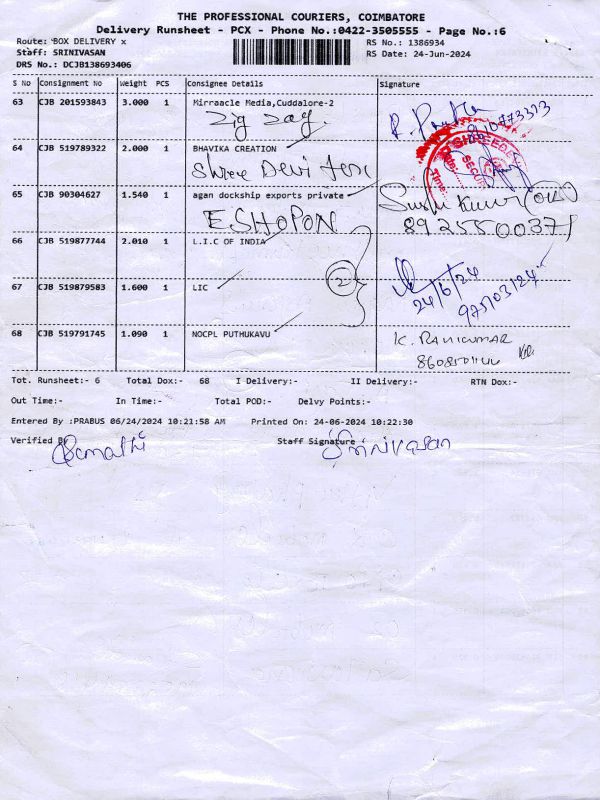 THE PROFESSIONAL COURIERS, COIMBATORE
Delivery Runsheet - PCX - Phone No.:0422-3505555 - Page No.:6
Route: BOX DELIVERY x
RS No.: 1386934
Staff: SRINIVASAN
RS Date: 24-Jun-2024
DRS No.: DCJB138693406
S No Consignment No Weight PCS Consignee Details Signature
63 CJB 201593843 3.000 1 Mirraacle Media,Cuddalore-2
Zig Zag.
64 CJB 519789322 2.000 1 BHAVIKA CREATION
Shree Devi
65 CJB 90304627 1.540 1 agan dockship exports private
ESHOPON
8925500371
66 CJB 519877744 2.010 1 L.I.C OF INDIA
2
67 CJB 519879583 1.600 1 LIC
24/6/24
68 CJB 519791745 1.090 1 NOCPL PUTHUKAVU
K. RAVIKUMAR
Tot. Runsheet:- 6 Total Dox:- 68 I Delivery:- II Delivery:- RTN Dox:-
Out Time:- In Time:- Total POD:- Delvy Points:-
Entered By :PRABUS 06/24/2024 10:21:58 AM Printed On: 24-06-2024 10:22:30
Verified By Staff Signature
Srinivasan